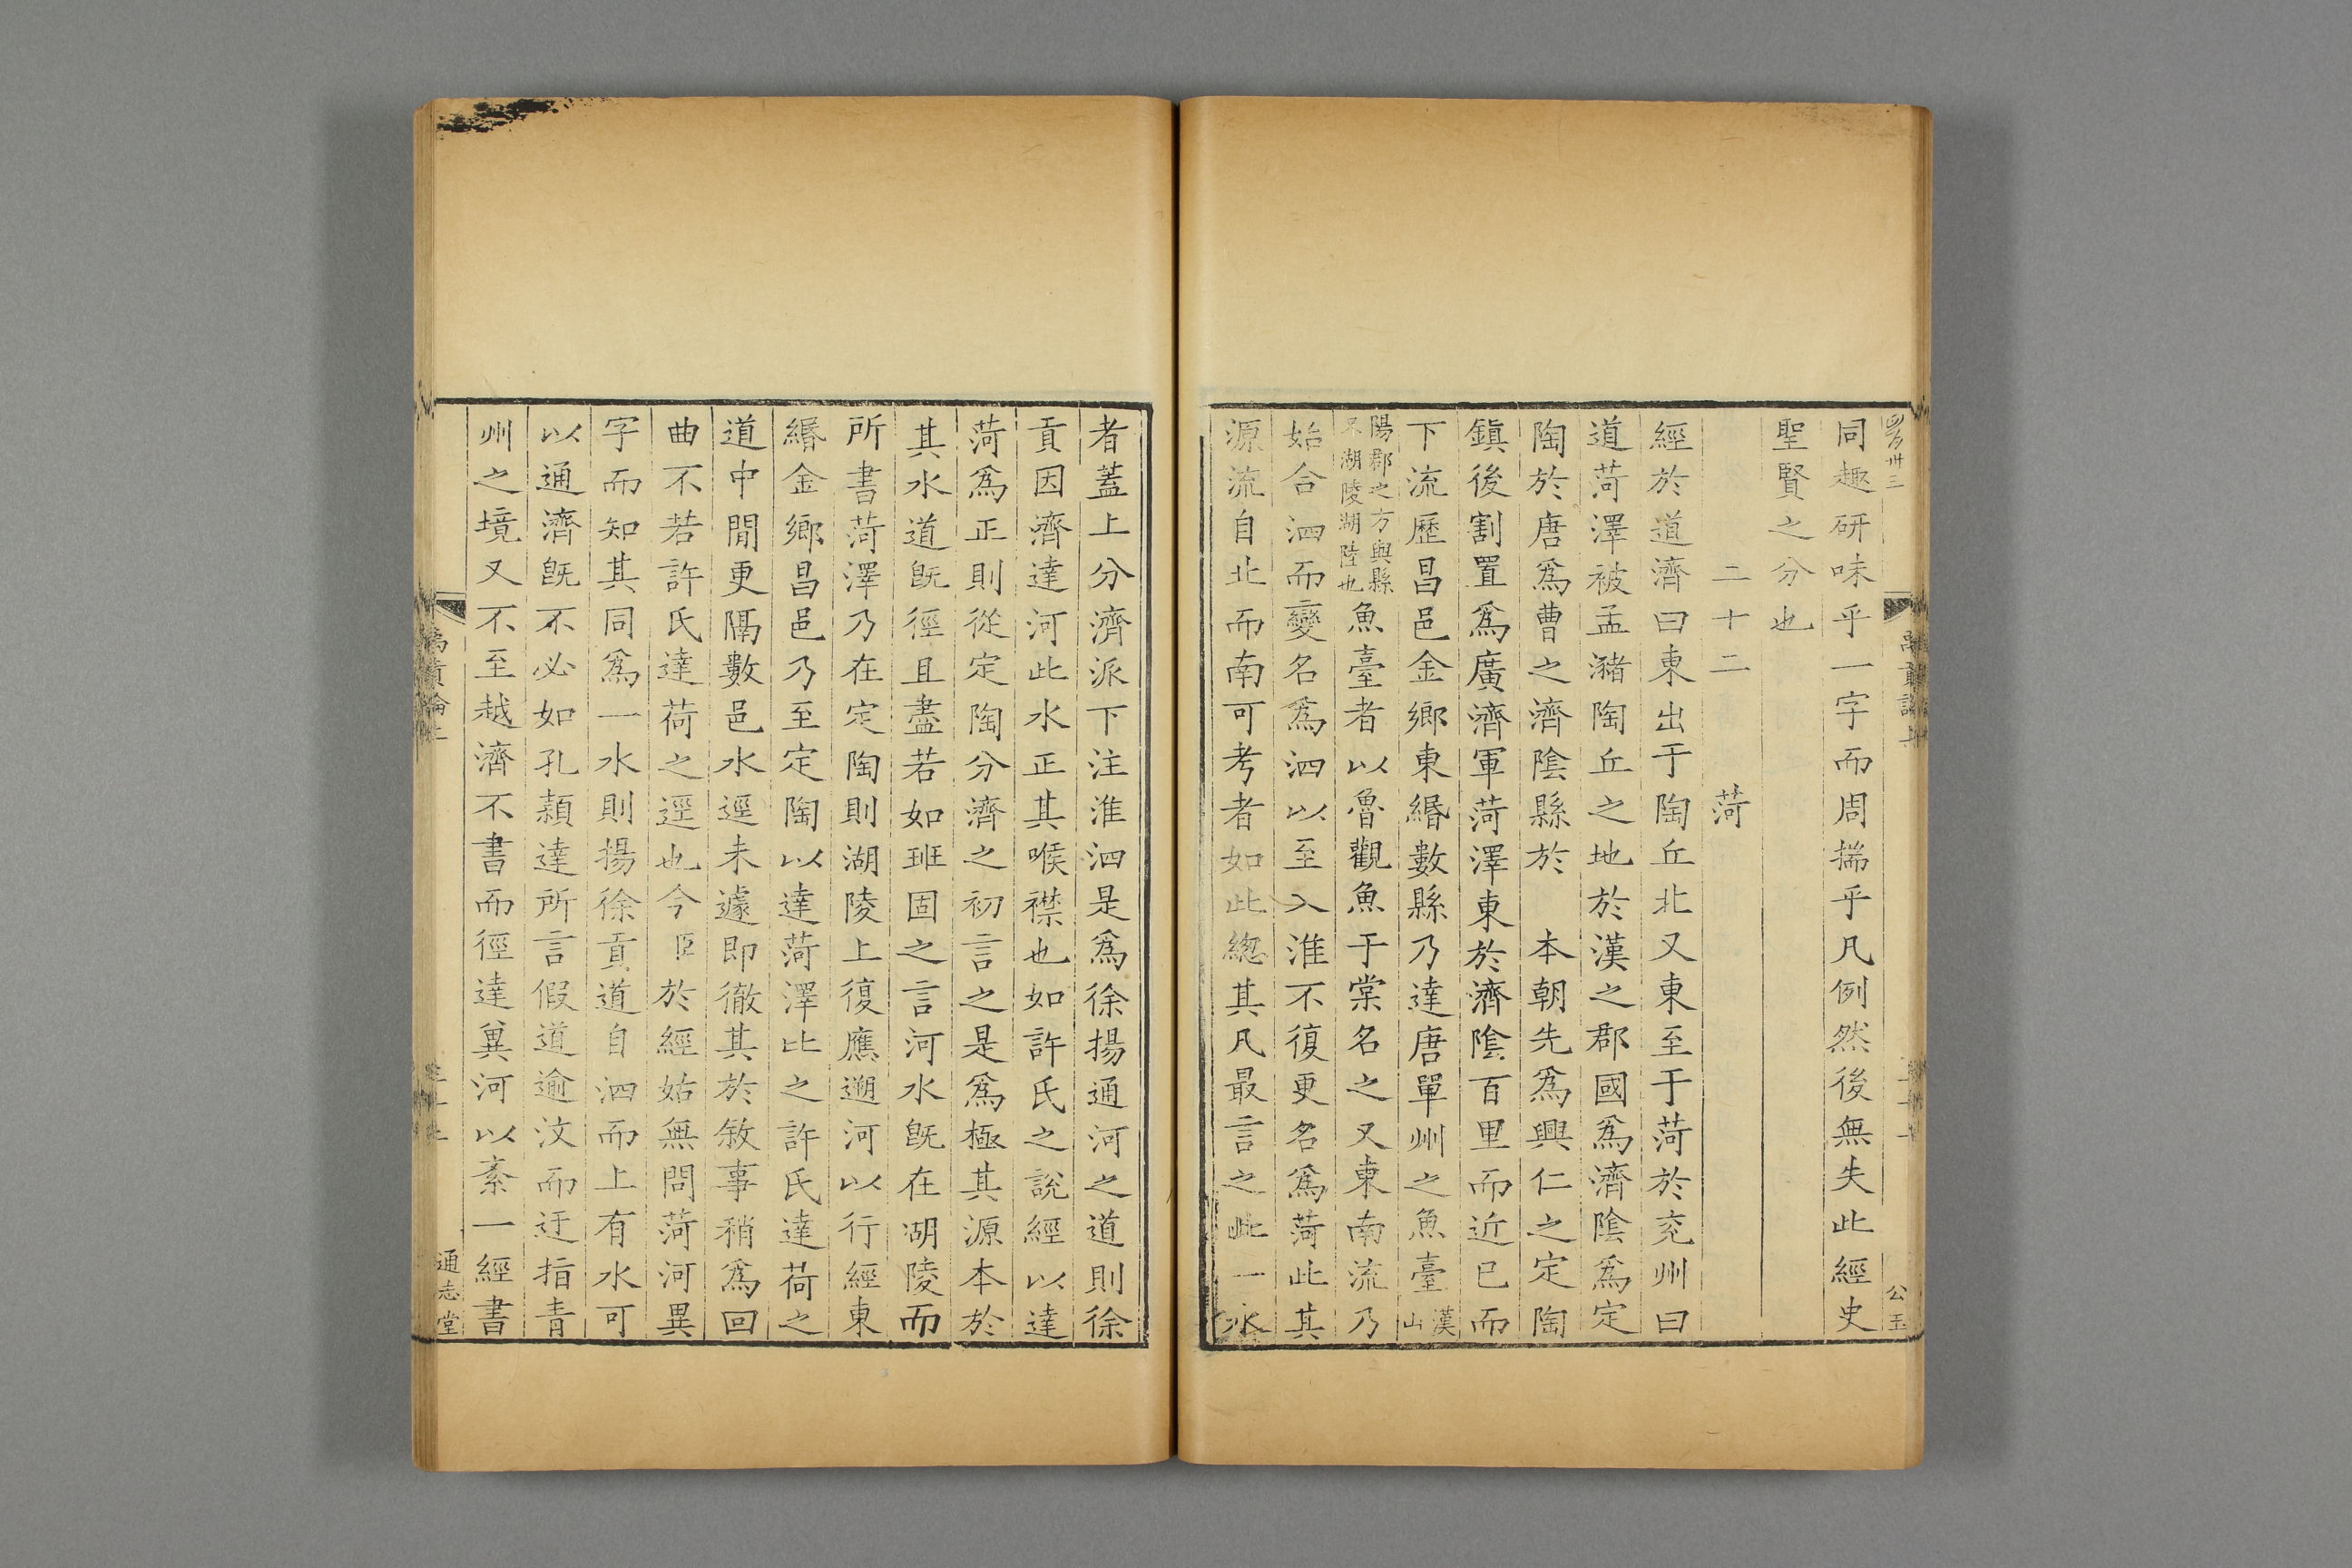 同趣研味乎一字而周揣乎凡例然後無失此經史
聖賢之分也
二十二　菏
經於道濟曰東出于陶丘北又東至于菏於兖州曰
道菏澤被孟瀦陶丘之地於漢之郡國爲濟陰爲定
陶於唐爲曹之濟陰縣於　本朝先爲興仁之定陶
鎮後割置爲廣濟軍菏澤東於濟陰百里而近巳而
下流歷昌邑金鄉東緡數縣乃達唐單州之魚臺漢山
陽郡之方與縣
湖陵湖陸也
魚臺者以魯觀魚于棠名之又東南流乃
始合泗而變名爲泗以至入淮不復更名爲菏此其
源流自北而南可考者如此總其凡最言之此一水
公玉
者蓋上分濟派下注淮泗是爲徐揚通河之道則徐
貢因濟達河此水正其喉襟也如許氏之說經以達
菏爲正則從定陶分濟之初言之是爲極其源本於
其水道旣徑且盡若如班固之言河水旣在湖陵而
所書菏澤乃在定陶則湖陵上復應遡河以行經東
緡金鄉昌邑乃至定陶以達菏澤比之許氏達荷之
道中間更隔數邑水逕未遽即徹其於敘事稍爲回
曲不若許氏達荷之逕也今臣於經姑無問菏河異
字而知其同爲一水則揚徐貢道自泗而上有水可
以通濟旣不必如孔穎達所言假道逾汶而迂指青
州之境又不至越濟不書而徑達冀河以紊一經書
禹貢論上
通志堂